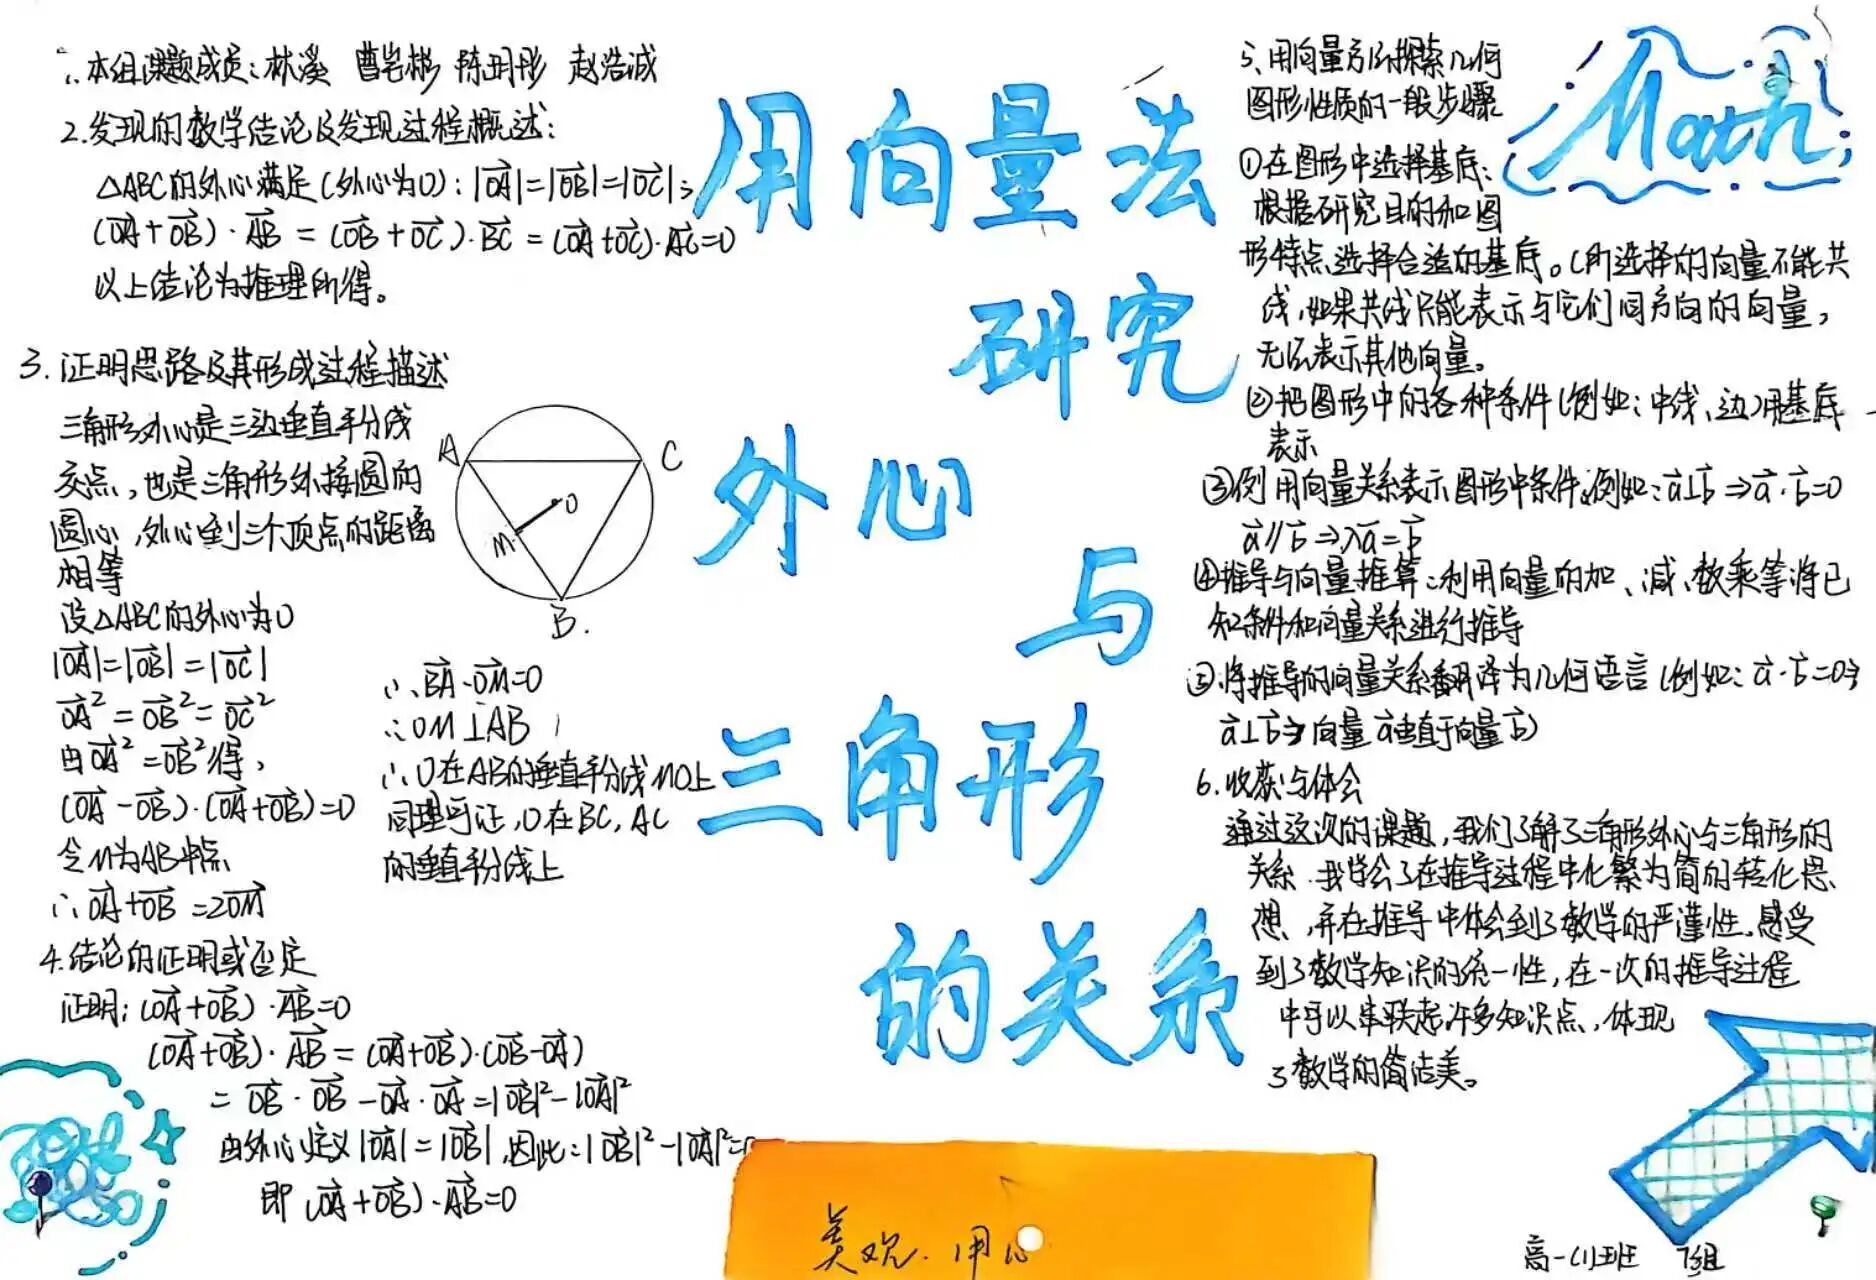 1. 本组课题成员：林溪
2.发现的数学结论及发现过程概述：
△ABC的外心满足(外心为O)：|OA|=|OB|=|OC|；
(OA+OB)·AB=(OB+OC)·BC=(OA+OC)·AC=0
以上结论为推理所得。
3.证明思路及其形成过程描述
三角形外心是三边垂直平分线
交点，也是三角形外接圆的
圆心，外心到三个顶点的距离
相等
设△ABC的外心为O
|OA|=|OB|=|OC|
OA²=OB²=OC²
由OA²=OB²得，
(OA-OB)·(OA+OB)=0
令M为AB中点
∴OA+OB=2OM
A
C
O
M
B.
∴BA·OM=0
∴OM⊥AB
∴O在AB的垂直平分线MO上
同理可证，O在BC，AC
的垂直平分线上
4.结论的证明或否定
证明：(OA+OB)·AB=0
(OA+OB)·AB=(OA+OB)·(OB-OA)
=OB·OB-OA·OA=|OB|²-|OA|²
由外心定义|OA|=|OB|，因此：|OB|²-|OA|²=
即(OA+OB)·AB=0
用向量法
研究
外心
与
三角形
的关系
Math
5、用向量方法探索几何
图形性质的一般步骤
①在图形中选择基底：
根据研究目的和图
形特点选择合适的基底。(所选择的向量不能共
线，如果共线只能表示与它们同方向的向量，
无法表示其他向量。
②把图形中的各种条件(例如：中线、边)用基底
表示
③利用向量关系表示图形中条件，例如：a⊥b⇒a·b=0
a∥b⇒λa=b
④推导与向量推算：利用向量的加、减、数乘等将已
知条件和向量关系进行推导
⑤将推导的向量关系翻译为几何语言(例如：a·b=0⇒
a⊥b⇒向量a垂直于向量b)
6.收获与体会
通过这次的课题，我们了解了三角形外心与三角形的
关系，我学会了在推导过程中化繁为简的转化思
想，并在推导中体会到了数学的严谨性，感受
到了数学知识的统一性，在一次的推导过程
中可以串联起许多知识点，体现
了数学的简洁美。
美观.用心
高一(1)班 7组